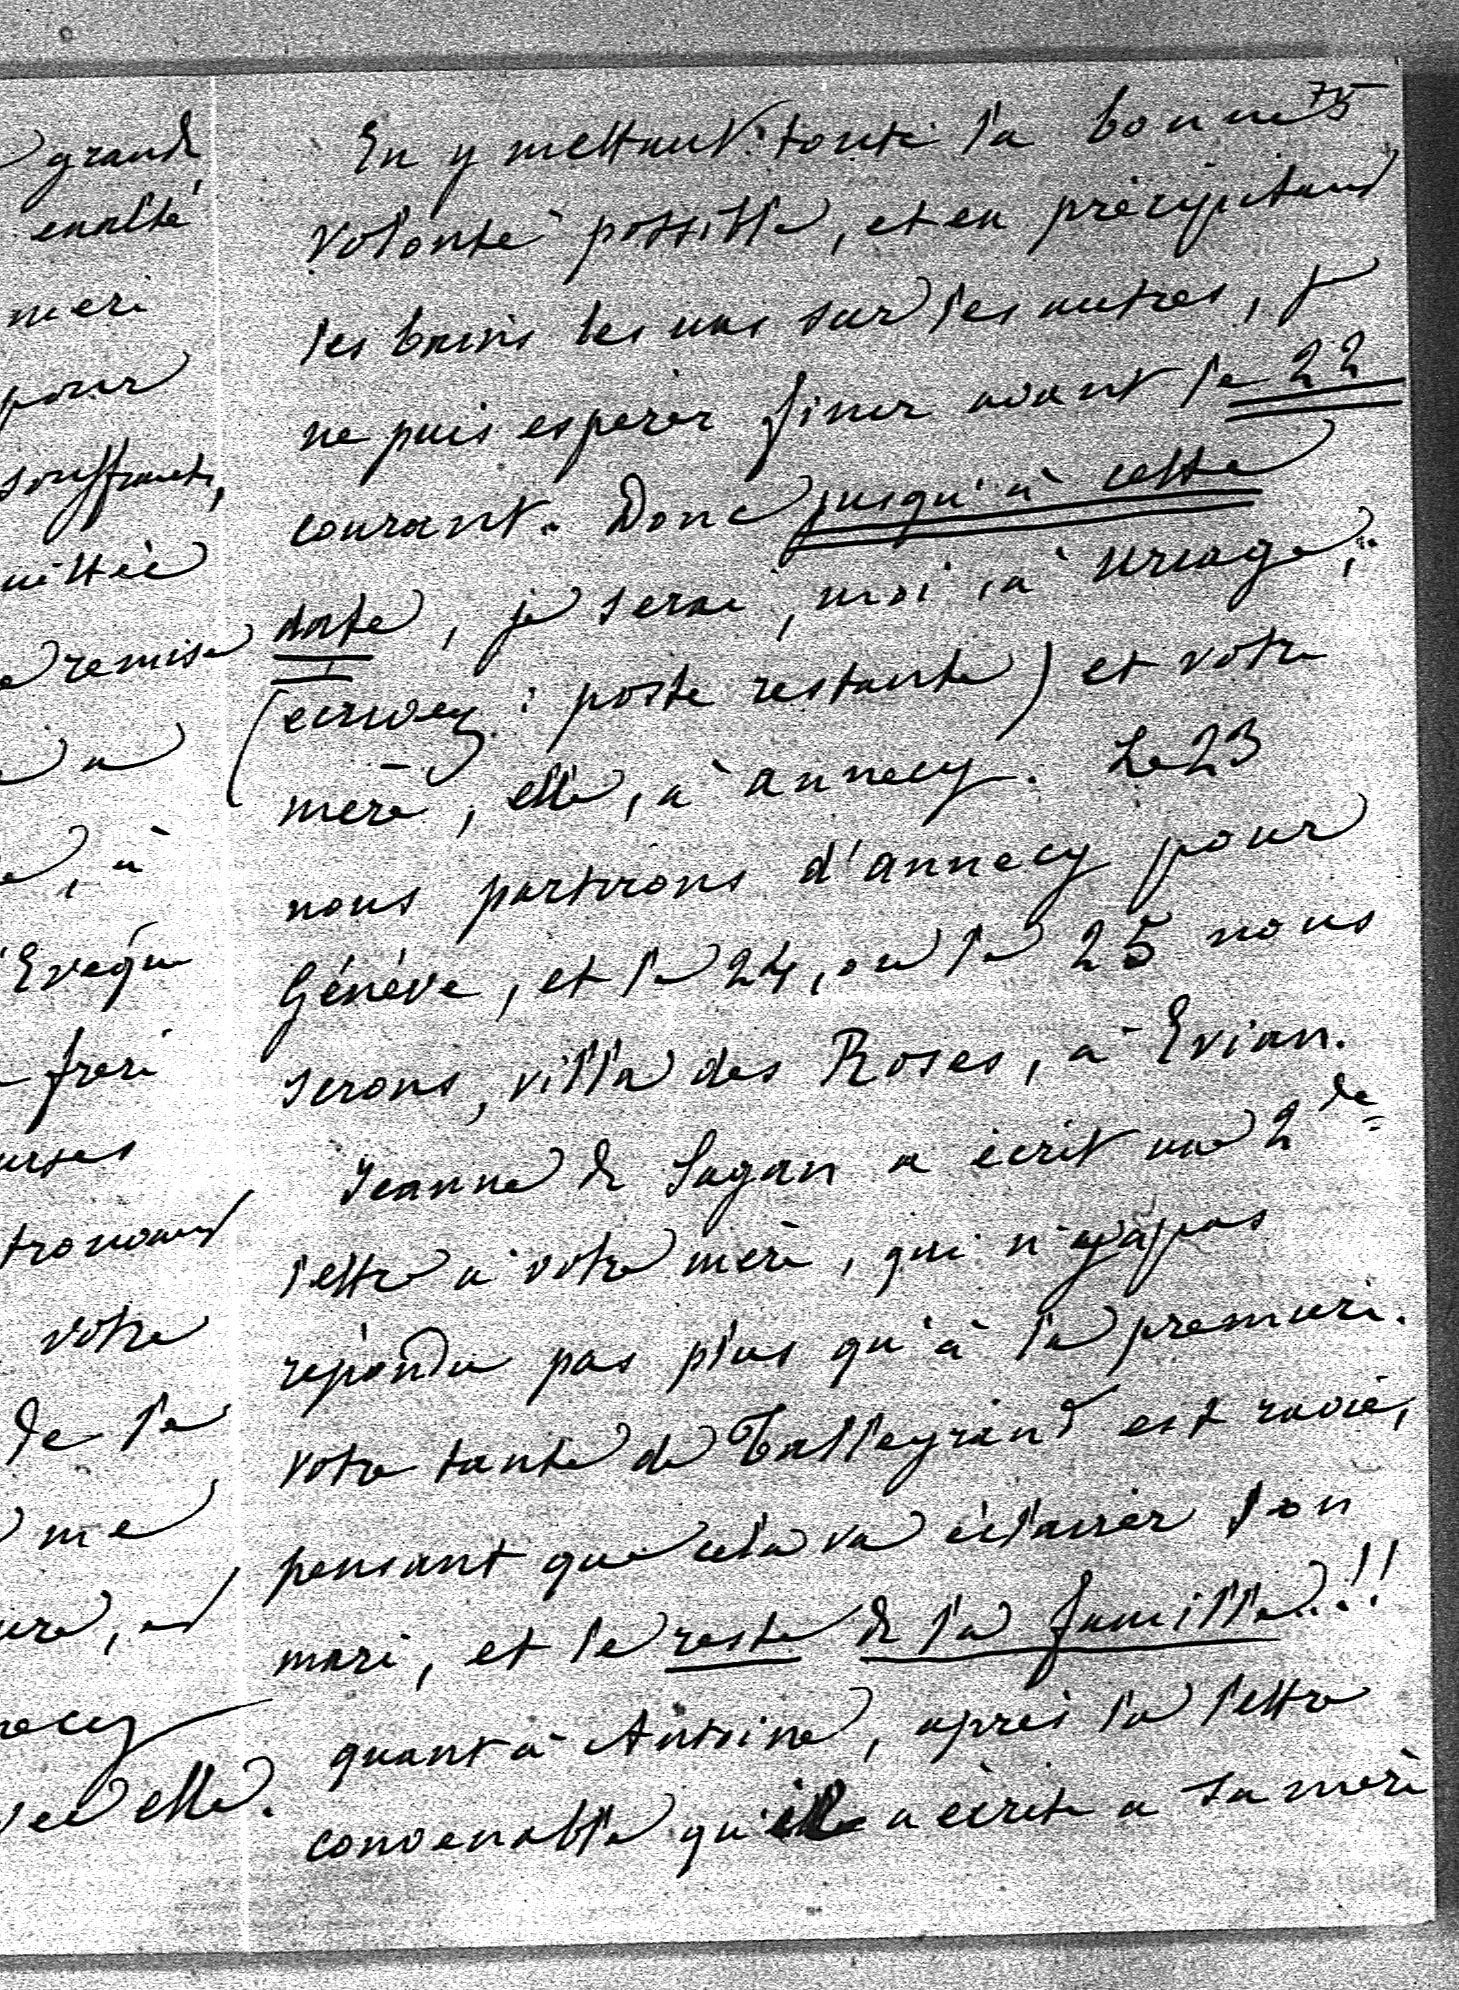 grand
enalté
meri
pour
souffrante,
uittée
e remise
a
, à
Evêque
frere
urses
trouvant
votre
De la
me
ure, et
necy
vec elle.
75
En y mettant toute la bonne
volonté possible, et en précipitant
les bains les uns sur les autres, je
ne puis espérer finir avant le 22
courant. Donc jusqu'à cette
date, je serai, moi, à Uriage,
(écrivez : poste restante) et votre
mère, elle, à Annecy. Le 23
nous partirons d'Annecy pour
Génève, et le 24, ou le 25 nous
serons, villa des Roses, à Evian.
Jeanne de Sagan a écrit une 2de
lettre à votre mère, qui n'y a pas
répondu pas plus qu'à la premiere.
Votre tante de Talleyrand est ravie,
pensant que cela va éclairer son
mari, et le reste de la famille..!!
quant à Antoine, après la lettre
convenable qu'il a écrite a sa mère